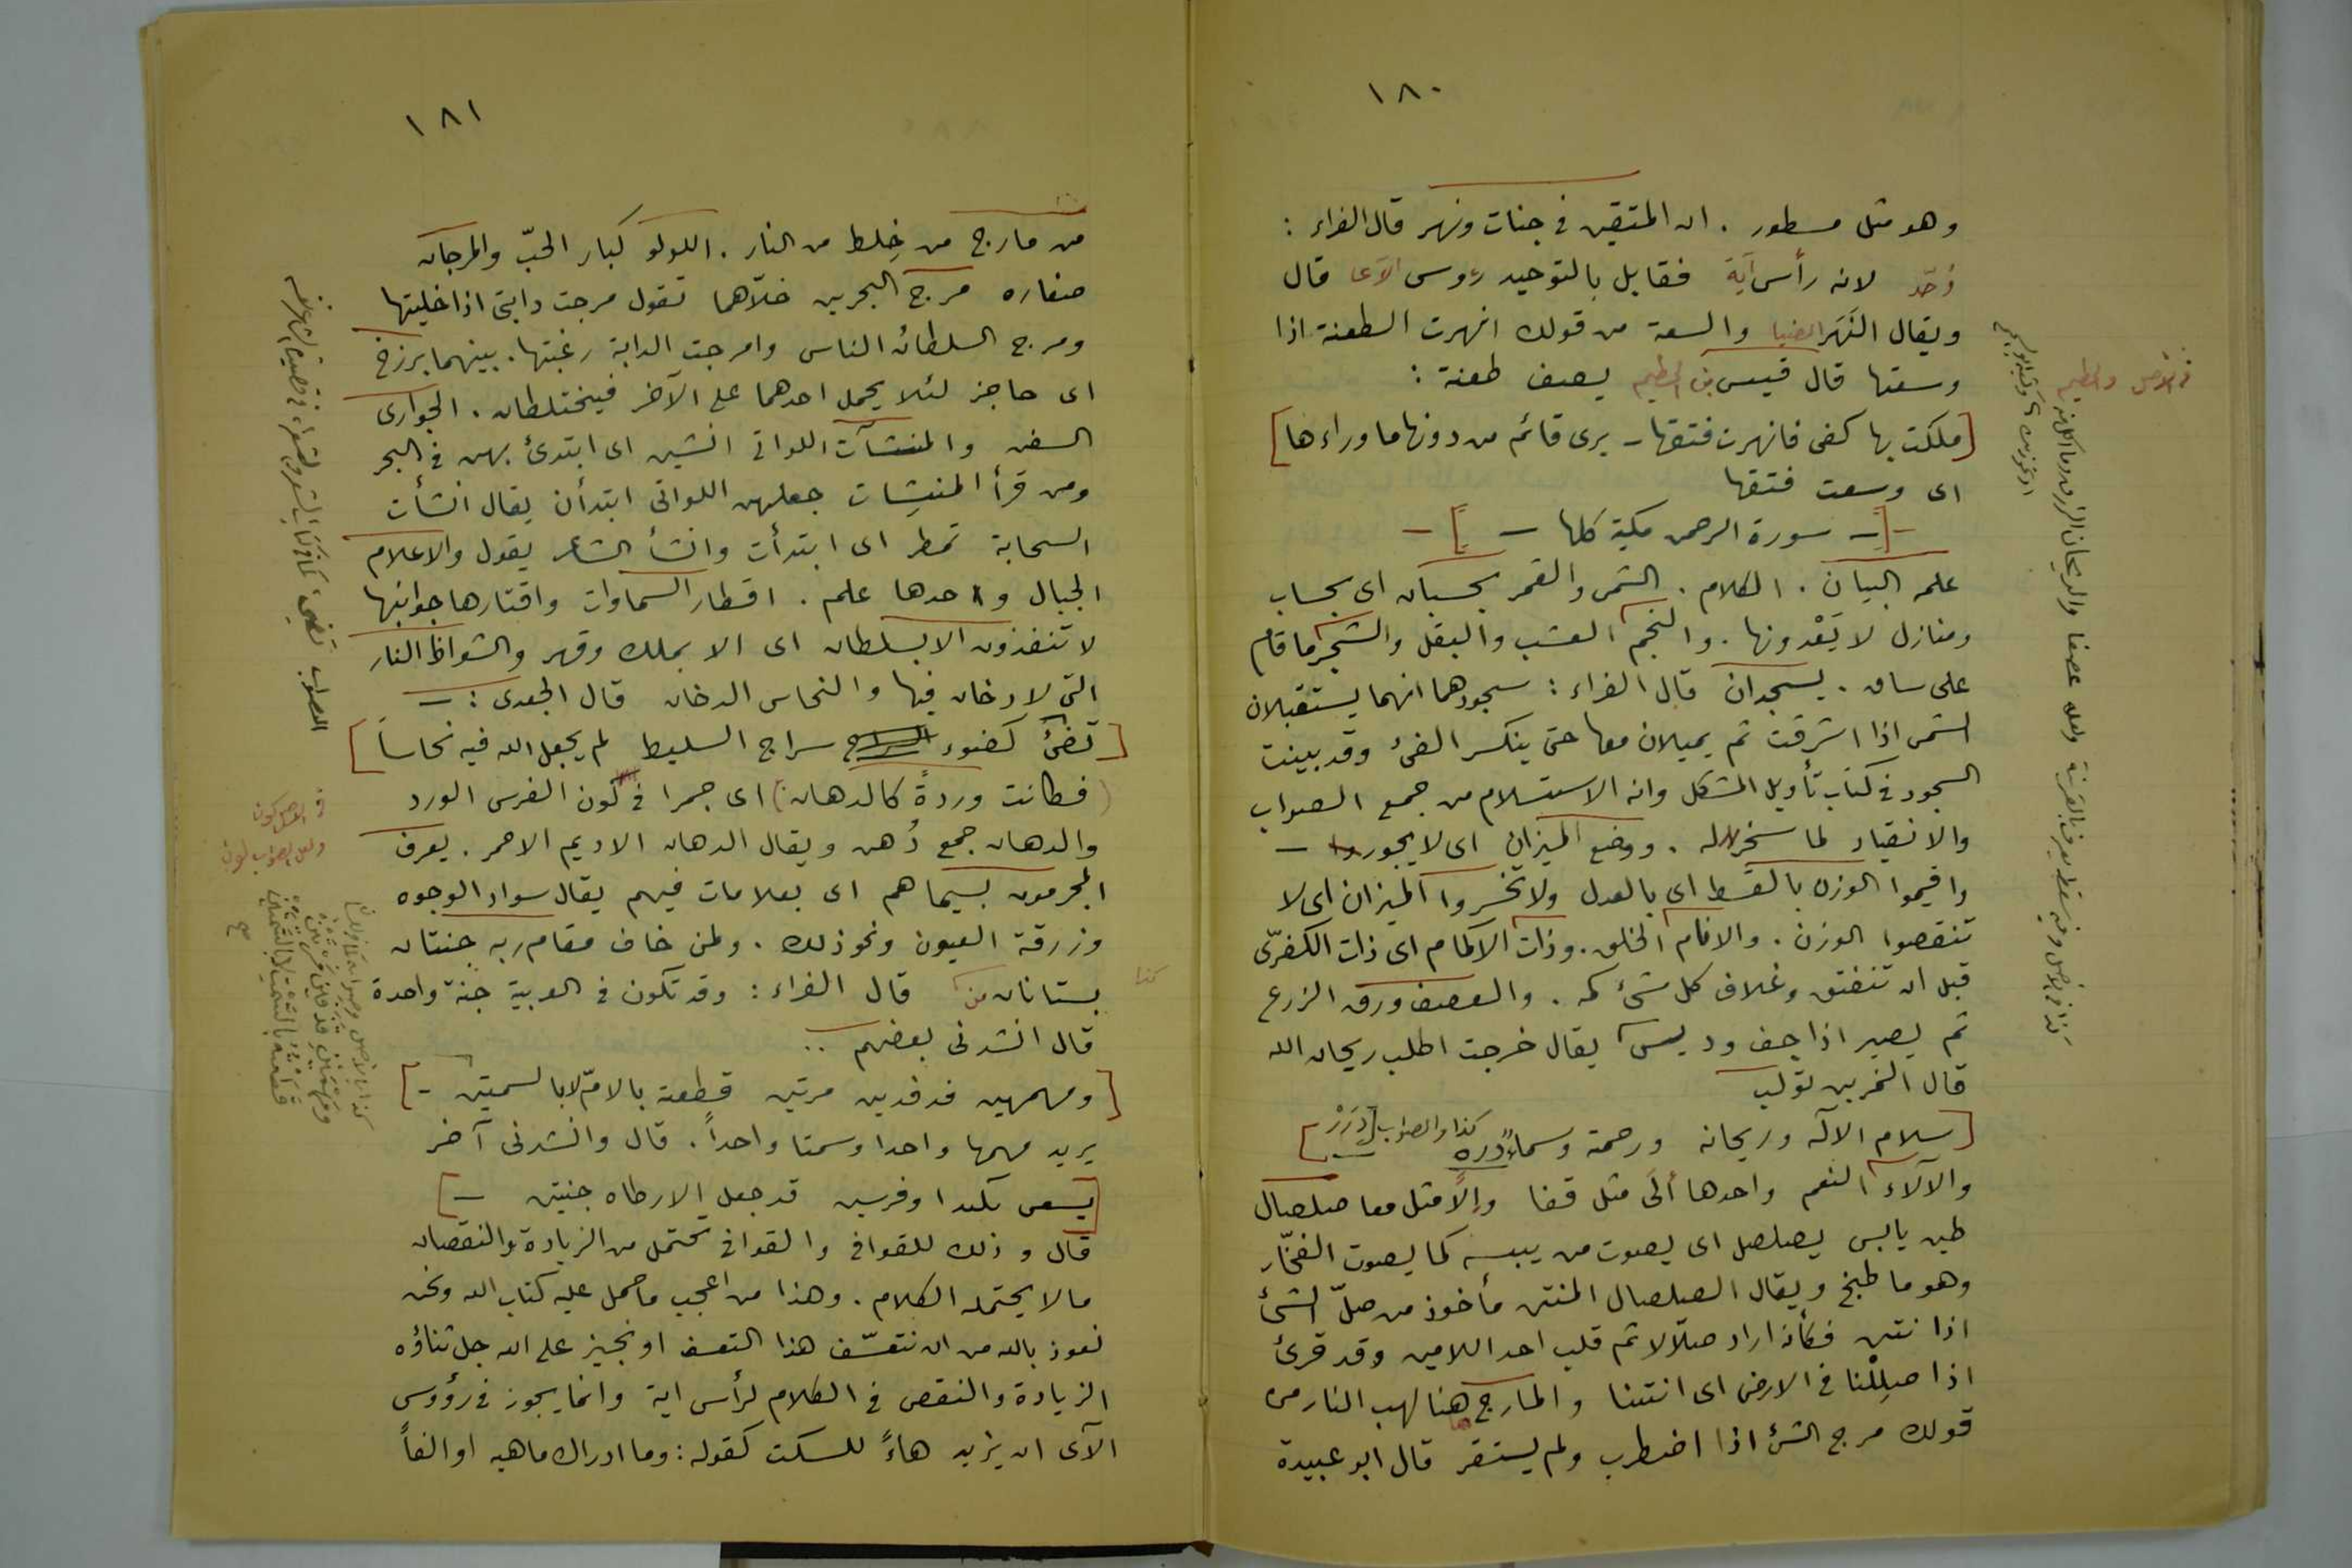 ١٨٠
وهو مثل مسطور . ان المتقين في جنات ونهر قال الفراء :
وحّد لانه رأس آية فقابل بالتوحيد رءوس الآى قال
ويقال النَهَر الضيا والسعة من قولك انهرت الطعنة اذا
وسعتها قال قيس بن الخطيم يصف طعنة :
[ملكت بها كفى فانهرت فتقها - يرى قائم من دونها ما وراءها]
اى وسعت فتقها
-[- سورة الرحمن مكية كلها -]-
علمه البيان . الكلام . الشمس والقمر بحسبان اى بحساب
ومنازل لا يَعْدونها . والنجم العشب والبقل والشجر ما قام
على ساق . يسجدان قال الفراء : سجودهما انهما يستقبلان
الشمس اذا اشرقت ثم يميلان معها حتى ينكسر الفئ وقد بينت
السجود في كتاب تأويل المشكل وانه الاستسلام من جمع الصواب
والانقياد لما سخر له . ووضع الميزان اى لا يجوروا -
واقيموا الوزن بالقسط اى بالعدل ولا تخسروا الميزان اى لا
تنقصوا الوزن . والانام الخلق . وذات الاكمام اى ذات الكفرّى
قبل ان تنفتق وغلاف كل شئ كمه . والعصف ورق الزرع
ثم يصير اذا جف وديس يقال خرجت اطلب ريحان الله
قال النمر بن تولب
[سلام الاله وريحانه ورحمة وسماءٌ دره كذا والصواب دِرَرْ]
والآلاء النعم واحدها أَلَى مثل قفا وإلًا مثل معا صلصال
طين يابس يصلصل اى يصوت من يبسه كما يصوت الفخّار
وهو ما طبخ ويقال الصلصال المنتن مأخوذ من صلّ الشئ
اذا نتن فكأنه اراد صلّالا ثم قلب احد اللامين وقد قرئ
اذا صلِلْنا في الارض اى انتنا والمارج هنا لهب النار من
قولك مرج الشئ اذا اضطرب ولم يستقر قال ابو عبيدة
في الاصل والخطيم
١٨١
من مارج من خِلط من النار . اللولو كبار الحبّ والمرجان
صغاره مرج البحرين خلّاهما تقول مرجت دابتى اذا خليتها
ومرج السلطان الناس وامرجت الدابة رغبتها . بينهما برزخ
اى حاجز لئلا يحمل احدهما على الآخر فيختلطان . الجوارى
السفن والمنشآت اللواتى انشين اى ابتدئ بهن في البحر
ومن قرأ المنشِات جعلهن اللواتى ابتدأن يقال انشأت
السحابة تمطر اى ابتدأت وانشأ الشاعر يقول والاعلام
الجبال واحدها علم . اقطار السماوات واقتارها جوانبها
لا تنفذون الا بسلطان اى الا بملك وقهر والشواظ النار
التى لا دخان فيها والنحاس الدخان قال الجعدى : -
[تضئ كضوء سراج السليط لم يجعل الله فيه نحاساً]
(فكانت وردةً كالدهان) اى حمرا في لون الفرس الورد
والدهان جمع دُهن ويقال الدهان الاديم الاحمر . يعرف
المجرمون بسيماهم اى بعلامات فيهم يقال سواد الوجوه
وزرقة العيون ونحو ذلك . ولمن خاف مقام ربه جنتان
بستانان من قال الفراء : وقد تكون في العربية جنة واحدة
كذا
قال انشدنى بعضهم ..
[ومهمهين فدفدين مرتين قطعته بالامّ لا بالسمتين -]
يريد مهمها واحدا وسمتا واحداً . قال وانشدنى آخر
[يسعى بكبدا وفرسين قد جعل الارطاه جنتين -]
قال وذلك للقوافى والقوافى تحتمل من الزيادة والنقصان
مالا يحتمله الكلام . وهذا من اعجب ما حمل عليه كتاب الله ونحن
نعوذ بالله من ان نتعسّف هذا التعسف او نجيز على الله جل ثناؤه
الزيادة والنقص في الكلام لرأس اية وانما يجوز في رؤوس
الآى ان يزيد هاءً للسكت كقوله : وما ادراك ماهيه او الفاً
في الاصل كون
ولعل الصواب لون